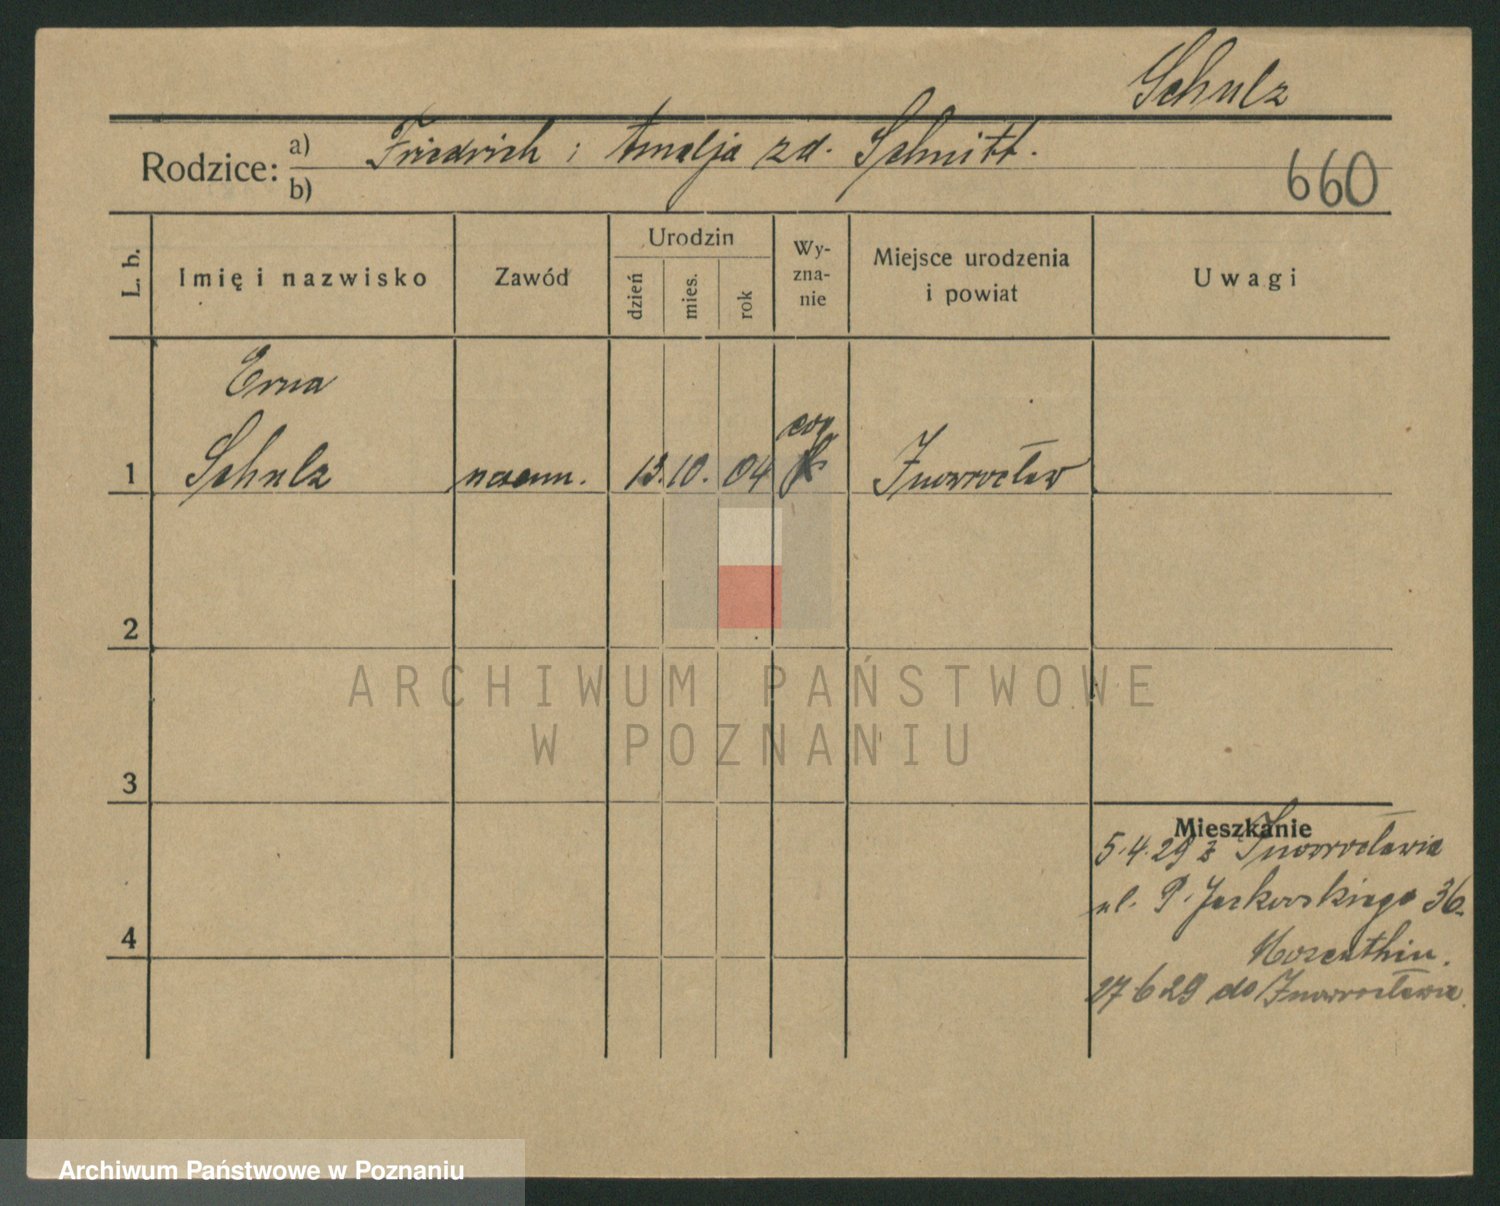 Schulz
Rodzice: a) Friedrich i Amalja zd. Schmitt.
b)
660
L. b.
Imię i nazwisko
Zawód
Urodzin
dzień
mies.
rok
Wy-
zna-
nie
Miejsce urodzenia
i powiat
Uwagi
Erna
1 Schulz naucz. 13. 10. 04 ew. Inowrocław
2
3
4
Mieszkanie
5.4.29 z Inowrocławia
ul. P. Jackowskiego 36
27.6.29 do Inowrocławia.
ARCHIWUM PAŃSTWOWE
W POZNANIU
Archiwum Państwowe w Poznaniu